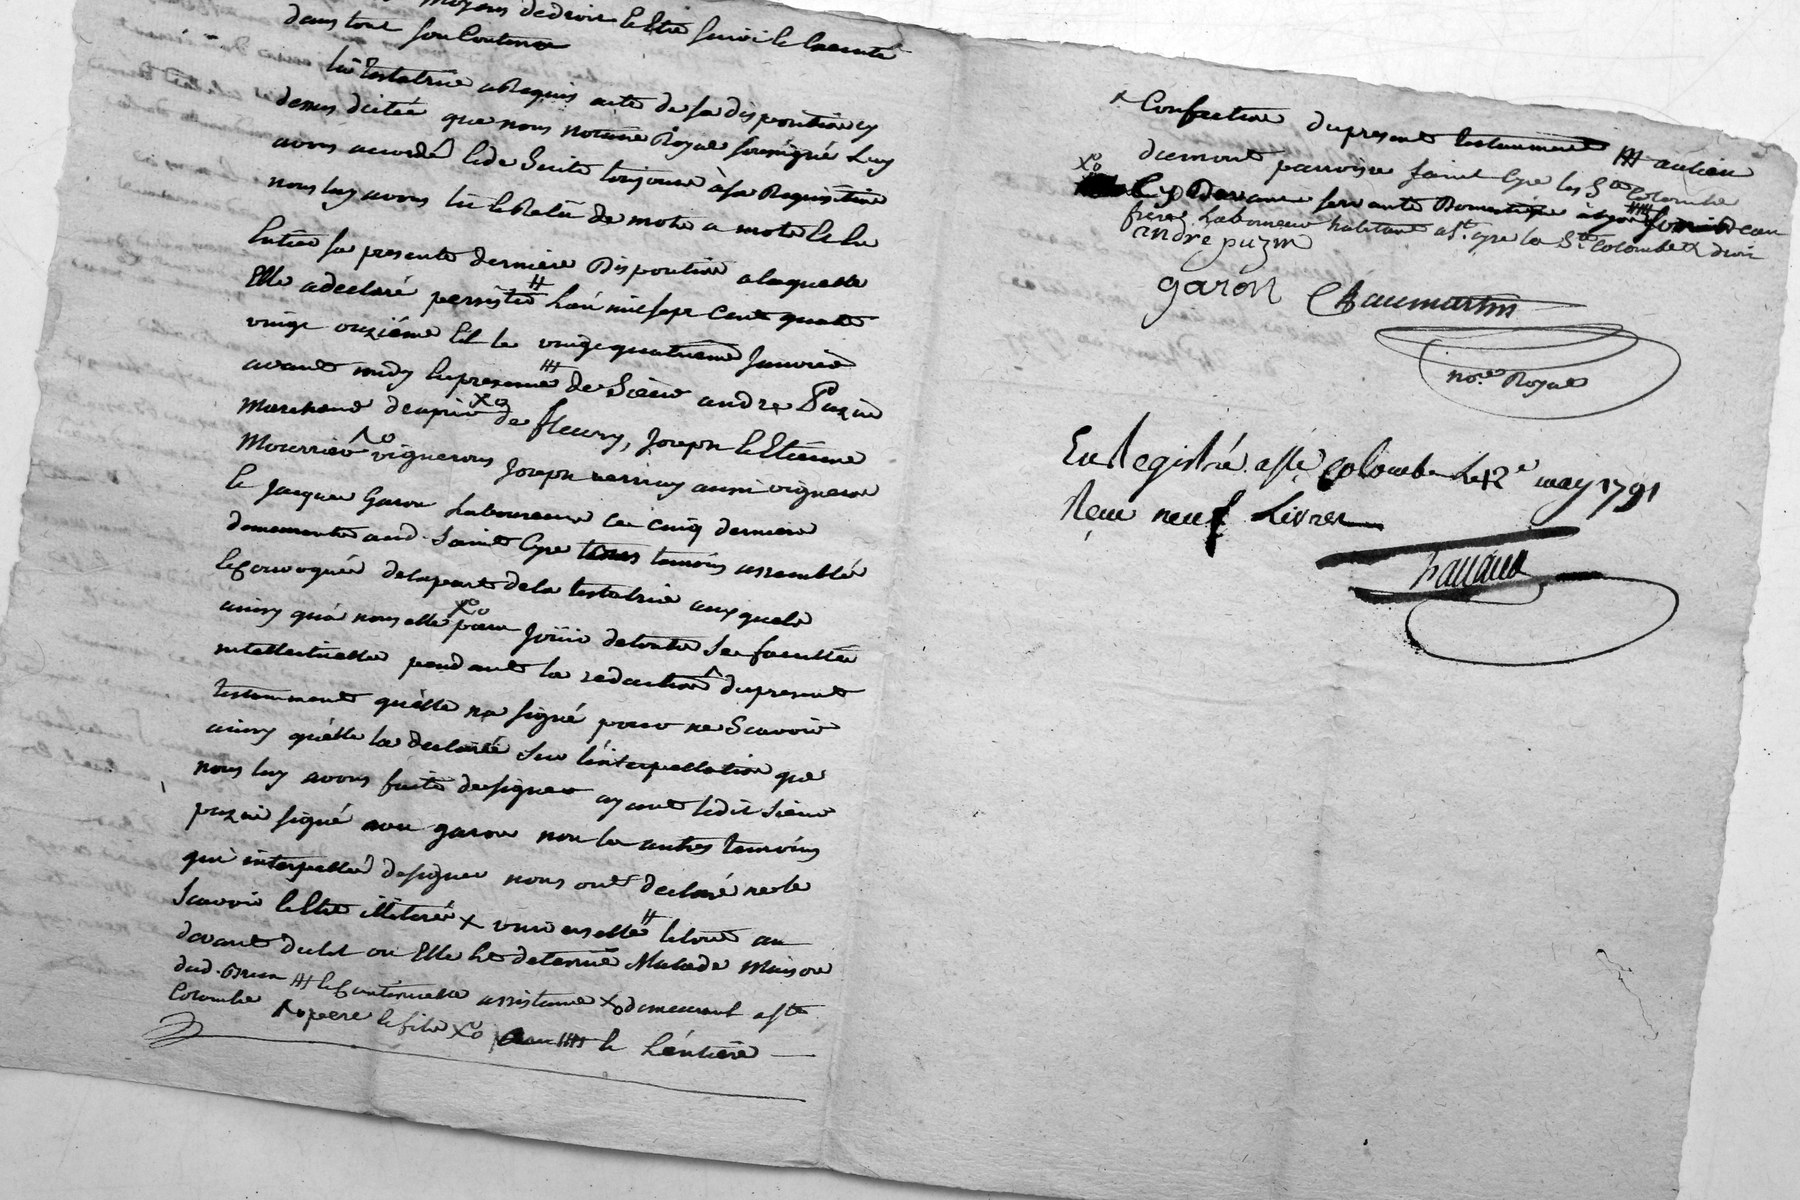 moyens de droit et Etre suivi et Execute
dans tout son Contenu
la testatrice a Requis acte de sa disposition cy
dessus dictée que nous notaire Royal soussigné Luy
avons accordé et de Suite toujours à sa Requisition
nous luy avons lu et Relu de mots a mots et en
Entier sa presente derniere Disposition a laquelle
Elle a declaré persister # L'an mil sept cent quatre
vingt onzième Et le vingt quatrieme Janvier
avant midy En presence #### de Sieur andré Puzin
Marchand de cuirs xo de fleury, Joseph et Etienne
Mourrier vignerons Joseph vernay aussi vigneron
et Jacques Garon Laboureur les cinq derniers
demeurants aud. Saint Cyre tous temoins assemblés
et Convoqués de la part de la testatrice aux quels
ainsy qu'à nous elle xo paru Jouir de toutes Ses facultés
intellectuelles pendant la redaction ^ du present
testamment qu'elle na signé pour ne Scavoir
ainsy qu'elle la declarée Sur l'interpellation que
nous luy avons faite de signer ayant ledit Sieur
puzin signé avec garon non les autres temoins
qui interpellés de signer nous ont declaré ne le
Scavoir et Etre illiterés x universelle # et tout au
devant du lit ou Elle Est detenue Malade Maison
dud. Brun ### et Continuelle assistance xo demeurant a Ste
Colombe pere et fils xo #### et L'entiere
x Confection du present testamment ### au lieu
dumont parroisse saint Cyre les Ste Colombe
servante Domestique
freres Laboureur habitant a St. Cyre les Ste Colombe
andre puzin
garon Chaumartin
nore. Royal
En Registré a Ste Colombe Le 12e may 1791
Reçu neuf Livres